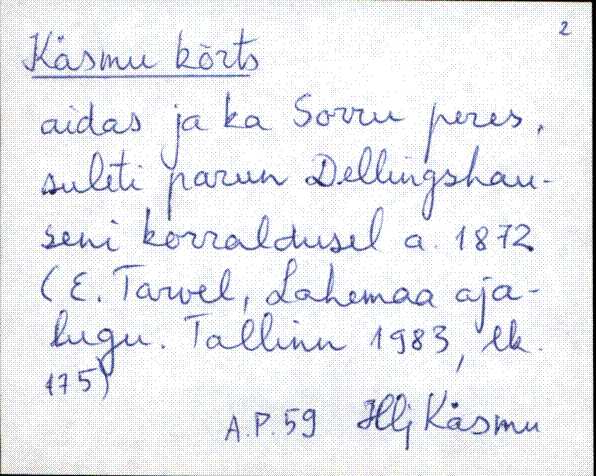 2
Käsmu kõrts
aidas ja ka Sorru peres,
suleti parun Dellingshau-
seni korraldusel a. 1872
(E. Tarvel, Lahemaa aja-
lugu. Tallinn 1983, lk.
175)
A.P.59 Hlj Käsmu